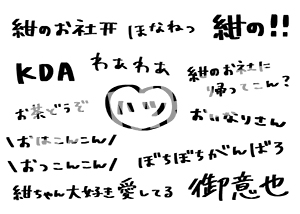 紺のお社⛩ ほなねっ 紺の!!
KDA わぁわぁ 紺のお社に
帰ってこん?
お茶どうぞ ハッ おいなりさん
\おはこんこん/
\おっこんこん/ ぼちぼちがんばろ
紺ちゃん大好き愛してる 御意也